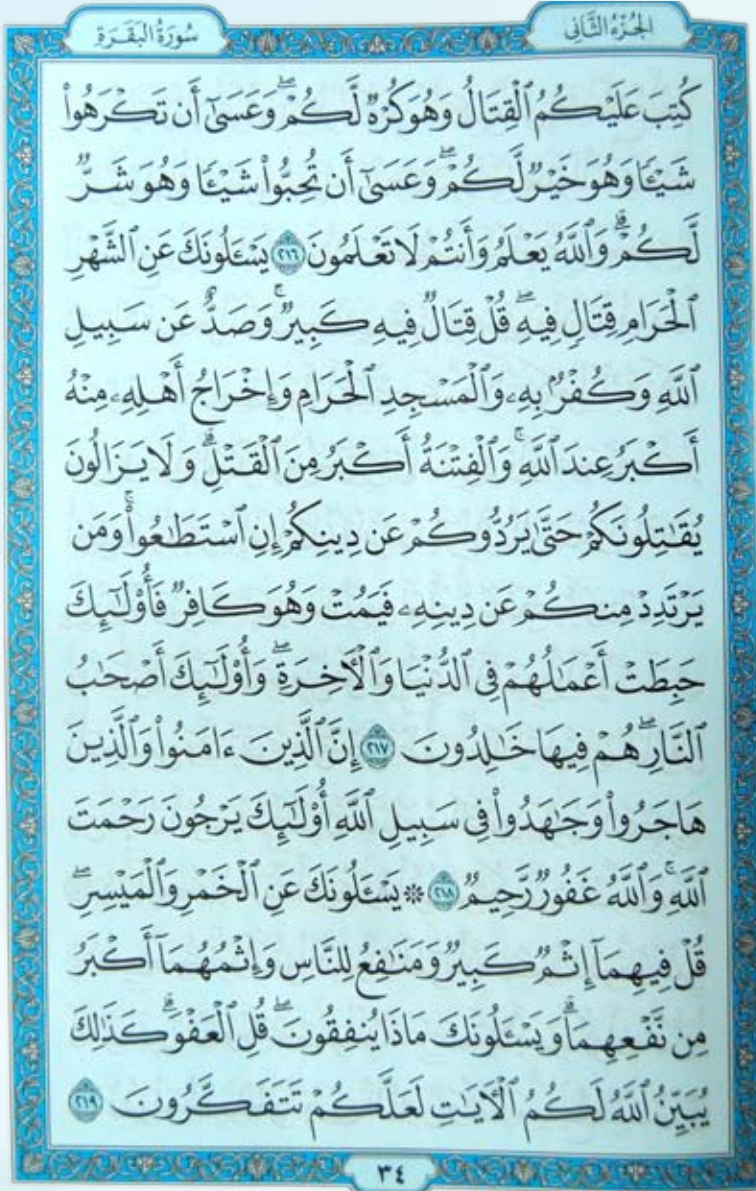 الجُزْءُ الثَّانِي
سُورَةُ البَقَرَةِ
كُتِبَ عَلَيۡكُمُ ٱلۡقِتَالُ وَهُوَ كُرۡهٞ لَّكُمۡۖ وَعَسَىٰٓ أَن تَكۡرَهُواْ
شَيۡـٔٗا وَهُوَ خَيۡرٞ لَّكُمۡۖ وَعَسَىٰٓ أَن تُحِبُّواْ شَيۡـٔٗا وَهُوَ شَرّٞ
لَّكُمۡۚ وَٱللَّهُ يَعۡلَمُ وَأَنتُمۡ لَا تَعۡلَمُونَ ٢١٦ يَسۡـَٔلُونَكَ عَنِ ٱلشَّهۡرِ
ٱلۡحَرَامِ قِتَالٖ فِيهِۖ قُلۡ قِتَالٞ فِيهِ كَبِيرٞۚ وَصَدٌّ عَن سَبِيلِ
ٱللَّهِ وَكُفۡرُۢ بِهِۦ وَٱلۡمَسۡجِدِ ٱلۡحَرَامِ وَإِخۡرَاجُ أَهۡلِهِۦ مِنۡهُ
أَكۡبَرُ عِندَ ٱللَّهِۚ وَٱلۡفِتۡنَةُ أَكۡبَرُ مِنَ ٱلۡقَتۡلِۗ وَلَا يَزَالُونَ
يُقَٰتِلُونَكُمۡ حَتَّىٰ يَرُدُّوكُمۡ عَن دِينِكُمۡ إِنِ ٱسۡتَطَٰعُواْۚ وَمَن
يَرۡتَدِدۡ مِنكُمۡ عَن دِينِهِۦ فَيَمُتۡ وَهُوَ كَافِرٞ فَأُوْلَٰٓئِكَ
حَبِطَتۡ أَعۡمَٰلُهُمۡ فِي ٱلدُّنۡيَا وَٱلۡأٓخِرَةِۖ وَأُوْلَٰٓئِكَ أَصۡحَٰبُ
ٱلنَّارِۖ هُمۡ فِيهَا خَٰلِدُونَ ٢١٧ إِنَّ ٱلَّذِينَ ءَامَنُواْ وَٱلَّذِينَ
هَاجَرُواْ وَجَٰهَدُواْ فِي سَبِيلِ ٱللَّهِ أُوْلَٰٓئِكَ يَرۡجُونَ رَحۡمَتَ
ٱللَّهِۚ وَٱللَّهُ غَفُورٞ رَّحِيمٞ ٢١٨ ۞ يَسۡـَٔلُونَكَ عَنِ ٱلۡخَمۡرِ وَٱلۡمَيۡسِرِۖ
قُلۡ فِيهِمَآ إِثۡمٞ كَبِيرٞ وَمَنَٰفِعُ لِلنَّاسِ وَإِثۡمُهُمَآ أَكۡبَرُ
مِن نَّفۡعِهِمَاۗ وَيَسۡـَٔلُونَكَ مَاذَا يُنفِقُونَۖ قُلِ ٱلۡعَفۡوَۗ كَذَٰلِكَ
يُبَيِّنُ ٱللَّهُ لَكُمُ ٱلۡأٓيَٰتِ لَعَلَّكُمۡ تَتَفَكَّرُونَ ٢١٩
٣٤